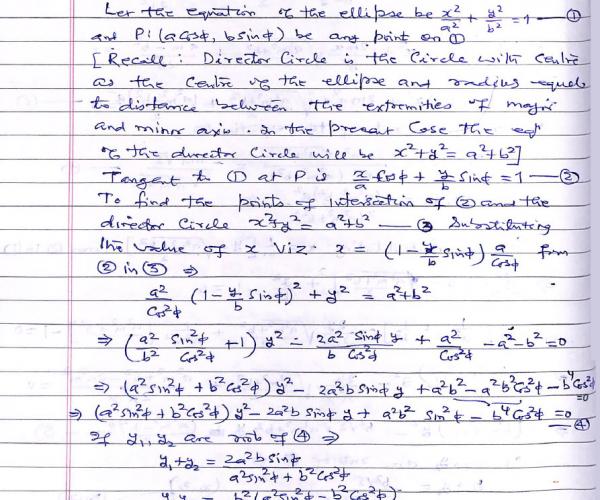 Let the equation of the ellipse be x²/a² + y²/b² = 1 — ①
and P: (a cosϕ, b sinϕ) be any point on ①
[Recall: Director Circle is the Circle with Centre
as the Centre of the ellipse and radius equals
to distance between the extremities of major
and minor axis. In the present Case the eqⁿ
of the director Circle will be x²+y² = a²+b²]
Tangent to ① at P is x/a cosϕ + y/b sinϕ = 1 — ②
To find the points of intersection of ② and the
director Circle x²+y² = a²+b² — ③ Substituting
the value of x viz. x = (1 - y/b sinϕ) a/cosϕ from
② in ③ ⇒
a²/cos²ϕ (1 - y/b sinϕ)² + y² = a²+b²
⇒ (a²/b² sin²ϕ/cos²ϕ + 1) y² - 2a² sinϕ y/b cos²ϕ + a²/cos²ϕ - a² - b² = 0
⇒ (a² sin²ϕ + b² cos²ϕ) y² - 2a²b sinϕ y + a²b² - a²b² cos²ϕ - b⁴ cos²ϕ = 0
⇒ (a² sin²ϕ + b² cos²ϕ) y² - 2a²b sinϕ y + a²b² sin²ϕ - b⁴ cos²ϕ = 0 — ④
If y₁, y₂ are roots of ④ ⇒
y₁+y₂ = 2a²b sinϕ/a² sin²ϕ + b² cos²ϕ
b²(a² sin²ϕ - b² cos²ϕ)